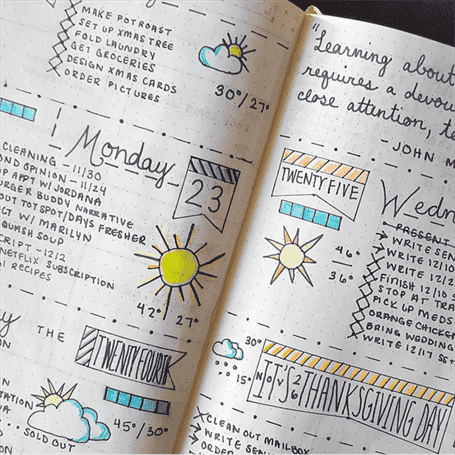 MAKE POT ROAST
SET UP XMAS TREE
FOLD LAUNDRY
GET GROCERIES
DESIGN XMAS CARDS
ORDER PICTURES
30°/27°
Monday
23
CLEANING - 11/30
OPINION - 11/24
APPT W/ JORDANA
BUDDY NARRATIVE
OUT TOTSPOT/DAYS FRESHER
W/ MARILYN
SQUASH SOUP
- 12/2
NETFLIX SUBSCRIPTION
RECIPES
42° 27°
THE
TWENTYFOURTH
SOLD OUT
45°/30°
"Learning about
requires a
close attention,
- JOHN M
TWENTY FIVE
46°
36°
Wedn
PRESENT
WRITE SEN
WRITE 12/
WRITE 12/2
FINISH 12/10 S
STOP AT TRA
PICK UP MEDS
ORANGE CHICKEN
BRING WEDDING
WRITE 12/17
30°
15°
NOV
26
IT'S THANKSGIVING DAY
CLEAN OUT MAILBOX
WRITE SEN
ORDER